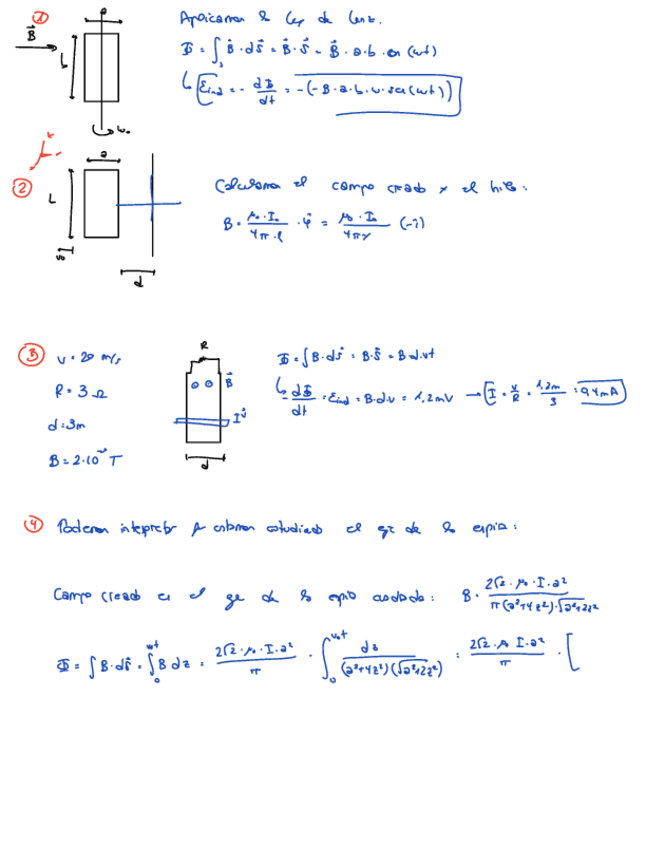 ① a
B⃗
b
w₀
Aplicamos la Ley de Lenz.
Φ = ∫ₛ B⃗ · dS⃗ = B⃗ · S⃗ = B⃗ · a · b · cos (wt)
↳ εind = - dΦ/dt = -(-B · a · b · w · sen (wt))
② a
L
d
Calculamos el campo creado x el hilo:
B = μ₀ · I₀ / 4π · r · φ̂ = μ₀ · I₀ / 4πr (-î)
③ v = 20 m/s
R = 3 Ω
d = 3m
B = 2·10 T
R
B⃗
d
Φ = ∫ B · dS⃗ = B · S⃗ = B d · vt
↳ - dΦ/dt = εind = B · d · v = 1,2mV → I = V/R = 1,2m/3 = 0,4mA
④ Podemos interpretar estudiado el eje de la espira:
Campo creado en el eje de la espira cuadrada: B = 2√2 · μ₀ · I · a² / π(a²+4z²) · √a²+2z²
Φ = ∫ B · dS⃗ = ∫₀ B dz = 2√2 · μ₀ · I · a² / π · ∫₀ dz / (a²+4z²)(√a²+2z²) = 2√2 · μ I · a² / π · [